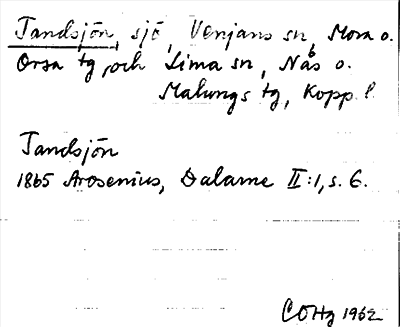 Tandsjön, sjö, Venjans sn, Mora o.
Orsa tg, och Lima sn, Nås o.
Malungs tg, Kopp. l.
Tandsjön
1865 Arosenius, Dalarne II:1, s. 6.
COHg 1962